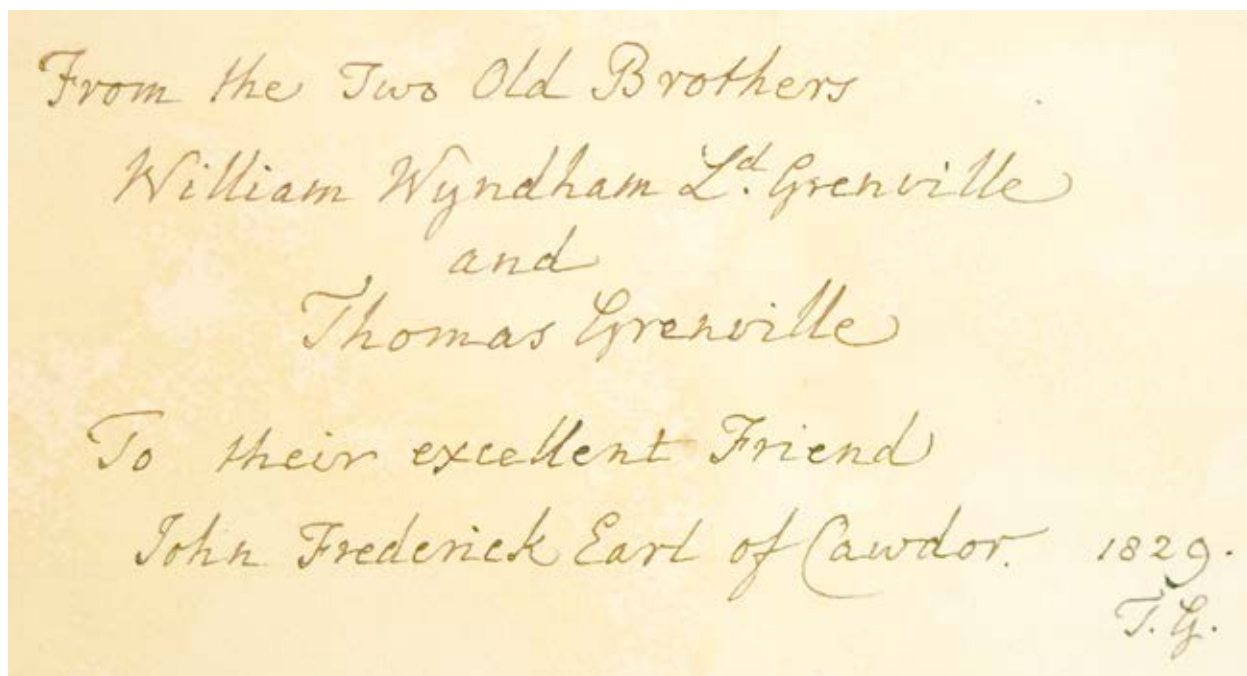 From the Two Old Brothers
William Wyndham Ld. Grenville
and
Thomas Grenville
To their excellent Friend
John Frederick Earl of Cawdor. 1829.
T. G.